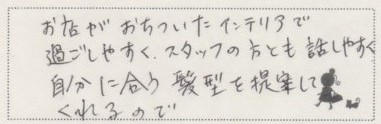 お店がおちついたインテリアで
過ごしやすく、スタッフの方とも話しやすく
自分に合う髪型を提案して
くれるので